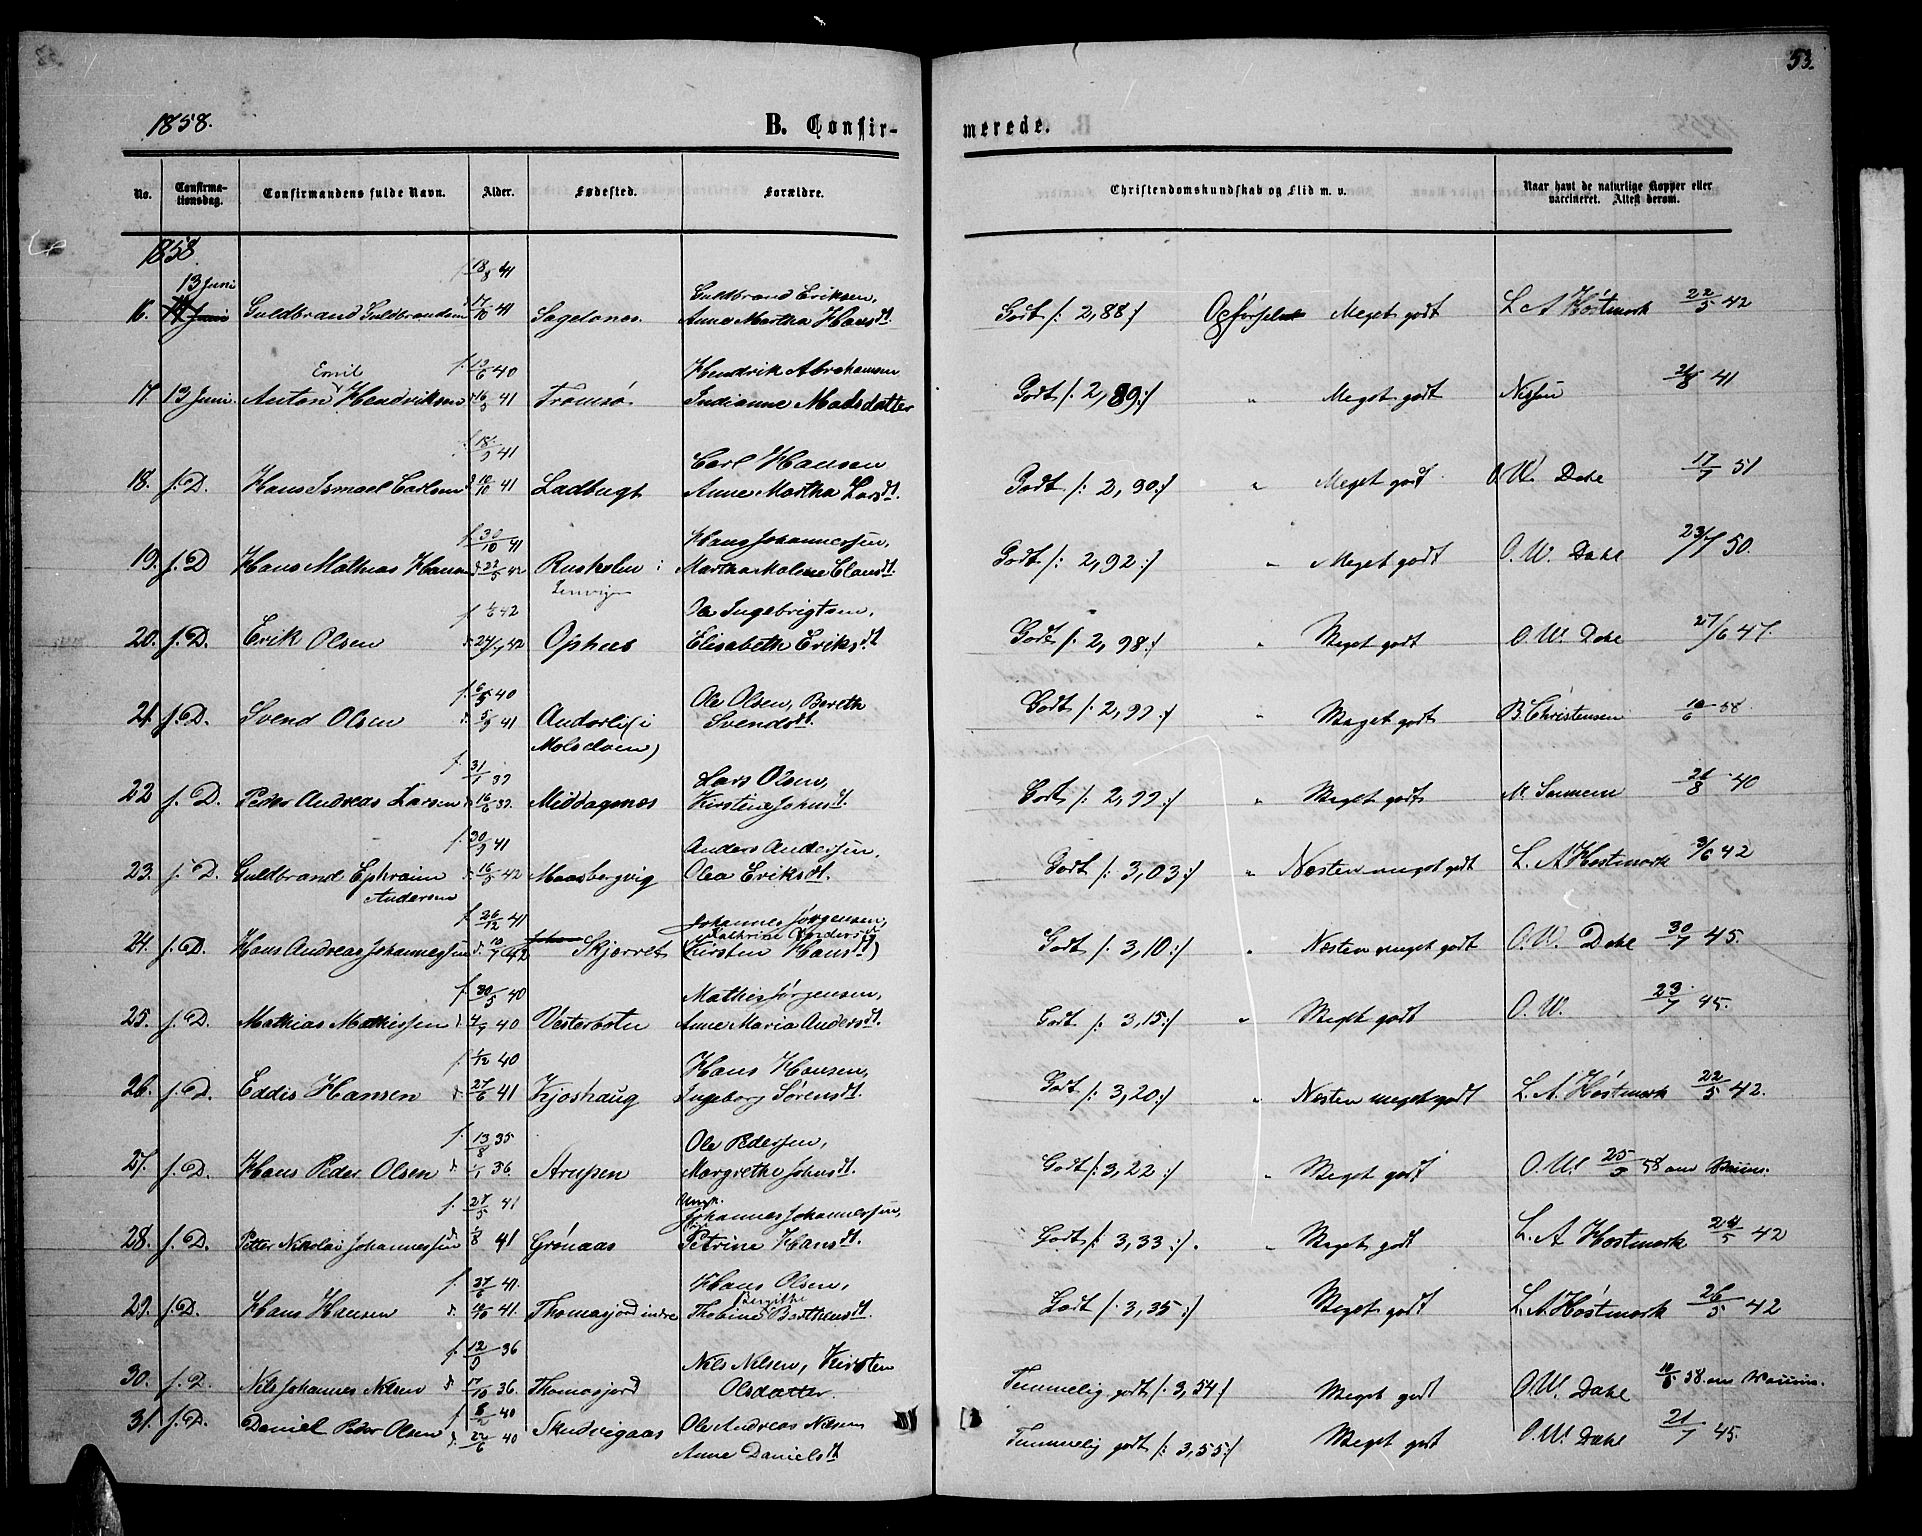 53.
1858.
B. Confir-
merede.
No.
Confirma-
tionsdag.
Confirmandens fulde Navn.
Alder.
Fødested.
Forældre.
Christendomskundskab og Flid m. v.
Naar havt de naturlige Kopper eller
vaccineret. Attest derom.
1858.
13 Juni f. 18/8 41 Guldbrand Eriksen,
16. Guldbrand Guldbrandsen 17/10 41 Sagelvnes. Anne Martha Hansdt. Godt /: 2,88 :/ Opførsel Meget godt L. A Høstmark 22/5 42
Emil f. 13/6 40 Hendrik Abrahamsen
17. 13 Juni. Anton Hendriksen 16/3 41 Tromsø. Indianne Madsdatter Godt /: 2,89 :/ " Meget godt 21/8 41
f. 18/9 41 Carl Hansen
18. s. D. Hans Ismael Carlsen d. 10/10 41 Ladbugt Anne Martha Larsdt. Godt /: 2,90 :/ " Meget godt O. W. Dahl 17/7 51
f. 30/10 41 Hans Johannessen,
19. s. D Hans Mathias Hansen d. 22/5 42 Rusholm i Martha Malene Clausdt. Godt /: 2,92 :/ " Meget godt O. W. Dahl 23/7 50.
Lenvigen
f. 1/6 42 Ole Ingebrigtsen,
20. s. D. Erik Olsen 24/7 42 Ophus Elisabeth Eriksdt. Godt /: 2,98 :/ " Meget godt O. W. Dahl 27/6 47.
f. 6/3 40 Ole Olsen, Bereth
21. s. D. Svend Olsen 5/9 41 Andorlil (i Svendsdt. Godt /: 2,99 :/ " Meget godt B. Christensen 10/6 58.
Molselven)
f. 31/1 39 Lars Olsen,
22 s. D. Peder Andreas Larsen 16/6 39. Middagsnes Kirstine Johnsdt. Godt /: 2,99 :/ " Meget godt 21/8 40
f. 30/9 41 Anders Andersen,
23. s. D. Guldbrand Ephraim 16/5 42 Maasbergvig Olea Eriksdt. Godt /: 3,03 :/ " Næsten meget godt L. A Høstmark 3/6 42
Andersen
f. 26/12 41 Johannes Jørgensen,
Kathrine Andersdt
24. s. D. Hans Andreas Johannessen d. 10/7 42 Skjærret (Kirsten Hansdt) Godt /: 3,10 :/ " Næsten meget godt O. W. Dahl 30/7 45.
f. 30/5 40 Mathis Jørgensen,
25. s. D. Mathias Mathissen 4/7 40 Vesterbotn Anne Maria Andersdt. Godt /: 3,15 :/ " Meget godt O. W. 23/7 45.
f. 1/12 40 Hans Hansen,
26. s. D. Eddis Hansen d. 27/6 41 Kjoshaug Ingeborg Sørensdt. Godt /: 3,20 :/ " Næsten meget godt L. A. Høstmark 22/5 42.
f. 13/8 35 Ole Pedersen,
27. s. D. Hans Peder Olsen d. 1/1 36. Strupen Margrethe Johnsdt. Godt /: 3,22 :/ " Meget godt O. W. 25/5 58
f. 27/5 41 Johannes Johannessen,
28. s. D. Petter Nikolai Johannessen d. 1/8 41 Grønaas Petrine Hansdt. Godt /: 3,33 :/. " Meget godt L. A Høstmark 24/5 42
f. 27/6 41. Hans Olsen,
Bergithe
29. s. D. Hans Hansen d. 10/10 41. Thomasjord indre Thobine Berthensdt. Godt /: 3,35 :/ Meget godt L. A Høstmark 26/5 42
f. 12/9 36 Nils Nilsen, Kirsten
30. s. D. Nils Johannes Nilsen d 17/10 36. Thomasjord Olsdatter. Temmelig godt /: 3,54 :/ Meget godt O. W. Dahl 10/6 58.
31. s. D. Daniel Peder Olsen f 8/2 40 Skudvigaas Ole Andreas Nilsen Temmelig godt /: 3,55 :/ Meget godt O. W. Dahl 21/7 45.
d. 22/6 40 Anne Danielsdt